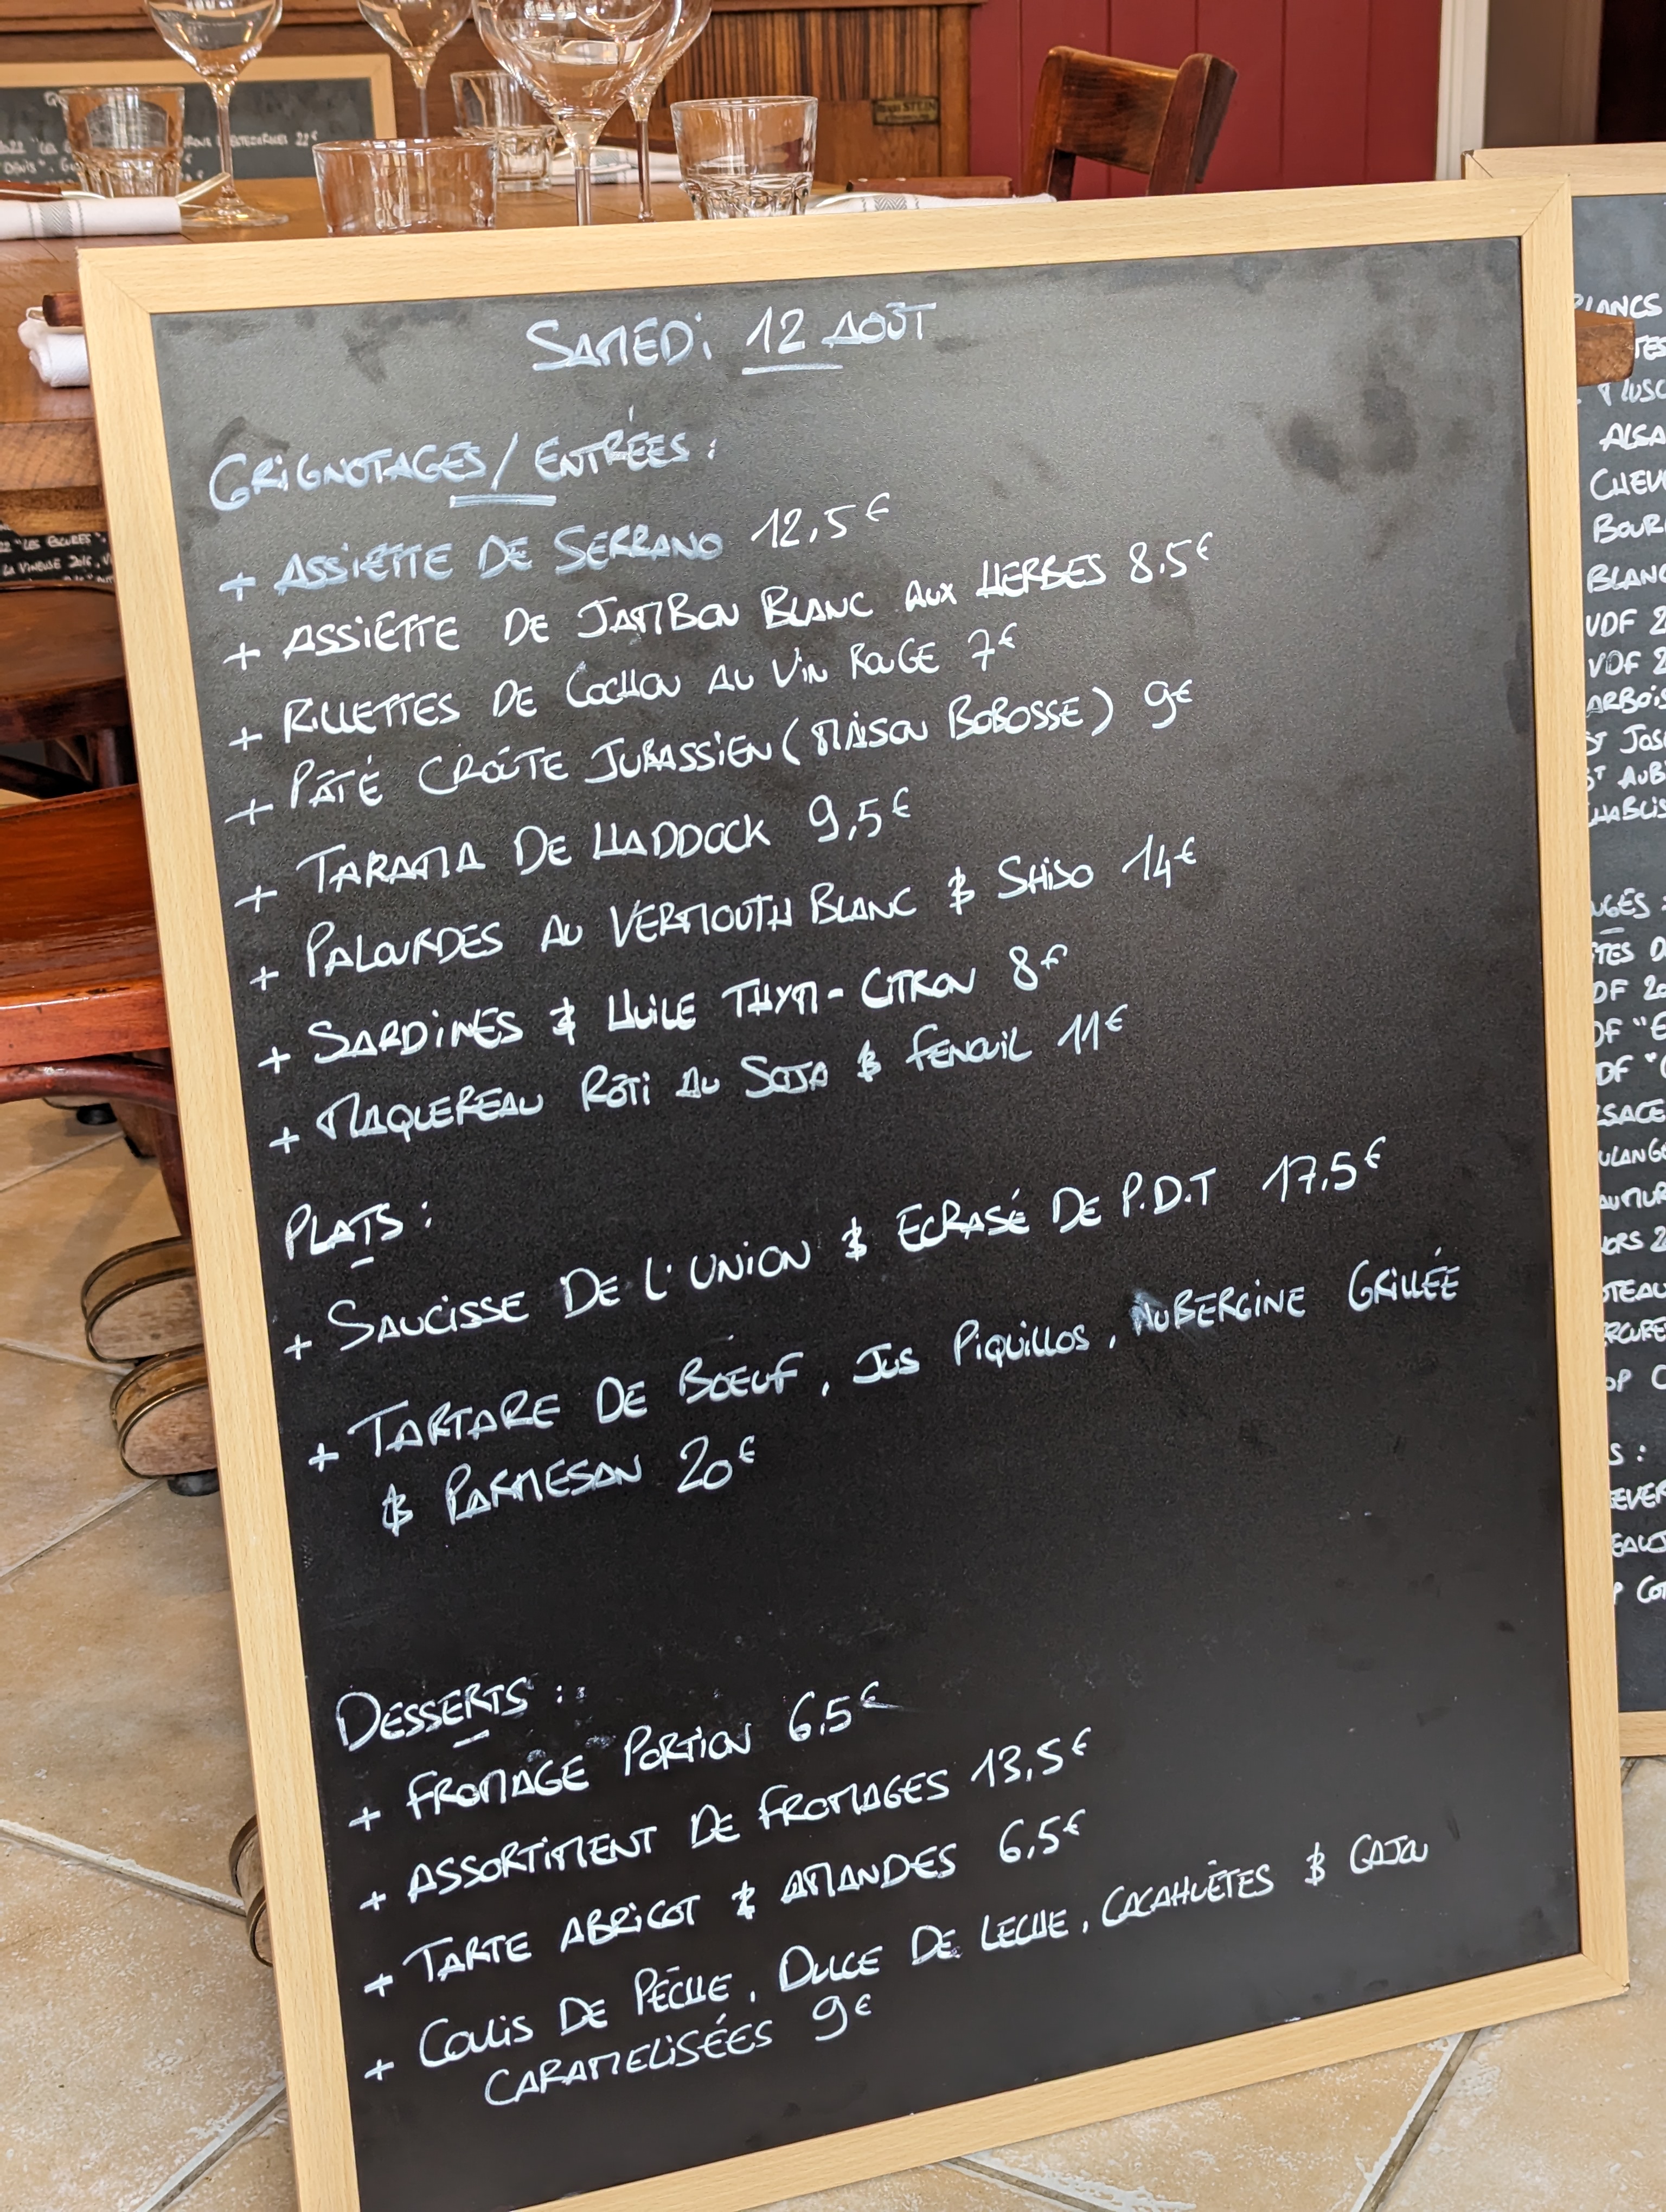 SAMEDI 12 AOÛT
GRIGNOTAGES / ENTRÉES :
+ ASSIETTE DE SERRANO 12,5€
+ ASSIETTE DE JAMBON BLANC AUX HERBES 8.5€
+ RILLETTES DE COCHON AU VIN ROUGE 7€
+ PÂTÉ CROÛTE JURASSIEN (MAISON BOBOSSE) 9€
+ TARAMA DE HADDOCK 9,5€
+ PALOURDES AU VERMOUTH BLANC & SHISO 14€
+ SARDINES & HUILE THYM-CITRON 8€
+ MAQUEREAU RÔTI AU SOJA & FENOUIL 11€
PLATS :
+ SAUCISSE DE L'UNION & ECRASÉ DE P.D.T 17.5€
+ TARTARE DE BŒUF, JUS PIQUILLOS, AUBERGINE GRILLÉE
& PARMESAN 20€
DESSERTS :
+ FROMAGE PORTION 6.5€
+ ASSORTIMENT DE FROMAGES 13,5€
+ TARTE ABRICOT & AMANDES 6,5€
+ COULIS DE PÊCHE, DULCE DE LECHE, CACAHUÈTES & CAJOU
CARAMELISÉES 9€
BLANCS
ALSA
CHEV
BOUR
BLANC
VDF 2
VDF 2
ARBOIS
ST JOS
ST AUB
CHABLIS